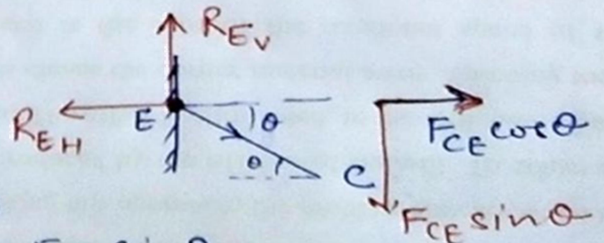 R_EV
R_EH E θ
θ C F_CE cosθ
F_CE sinθ
F sinθ